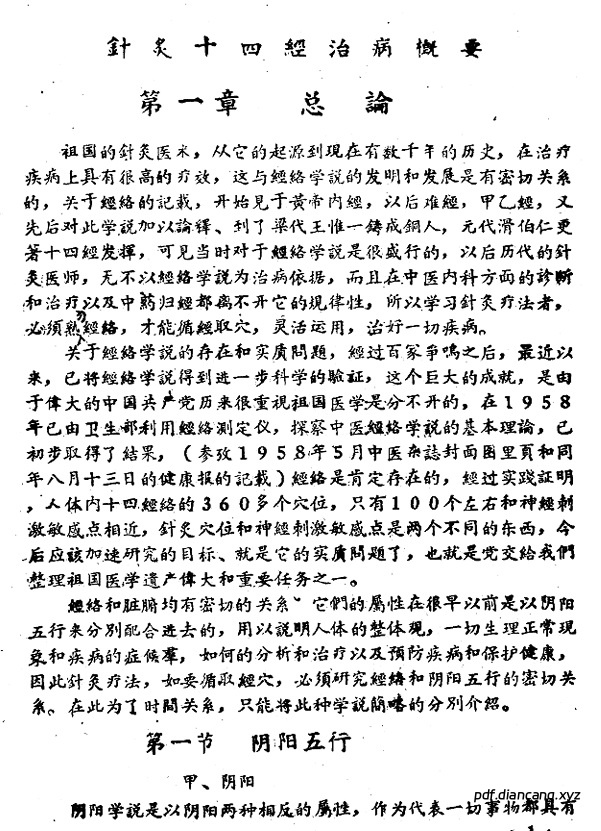 針灸十四經治病概要
第一章 总論
祖国的針灸医术，从它的起源到現在有数千年的历史，在治疗
疾病上具有很高的疗效，这与經络学説的发明和发展是有密切关系
的，关于經络的記載，开始見于黄帝内經，以后难經，甲乙經，又
先后对此学説加以論釋、到了梁代王惟一鋳成銅人，元代滑伯仁更
著十四經发揮，可見当时对于經络学説是很盛行的，以后历代的針
灸医师，无不以經络学説为治病依据，而且在中医内科方面的診断
和治疗以及中葯归經都离不开它的規律性，所以学习針灸疗法者，
必須熟經络，才能循經取穴，灵活运用，治好一切疾病。
关于經络学説的存在和实质問題，經过百家爭鳴之后，最近以
来，已将經络学説得到进一步科学的驗証，这个巨大的成就，是由
于偉大的中国共产党历来很重視祖国医学是分不开的，在１９５８
年已由卫生部利用經络測定仪，探察中医經络学説的基本理論，已
初步取得了結果，（参攷１９５８年５月中医杂誌封面图里頁和同
年八月十三日的健康报的記載）經络是肯定存在的，經过实践証明
，人体内十四經络的３６０多个穴位，只有１００个左右和神經刺
激敏感点相近，針灸穴位和神經刺激敏感点是两个不同的东西，今
后应該加速研究的目标、就是它的实质問題了，也就是党交給我們
整理祖国医学遗产偉大和重要任务之一。
經络和脏腑均有密切的关系 它們的屬性在很早以前是以阴阳
五行来分別配合进去的，用以説明人体的整体观，一切生理正常現
象和疾病的症候羣，如何的分析和治疗以及預防疾病和保护健康，
因此針灸疗法，如要循取經穴，必須研究經络和阴阳五行的密切关
系。在此为了时間关系，只能将此种学説简略的分別介绍。
第一节 阴阳五行
甲、阴阳
阴阳学説是以阴阳两种相反的屬性，作为代表一切事物都具有
pdf.diancang.xyz